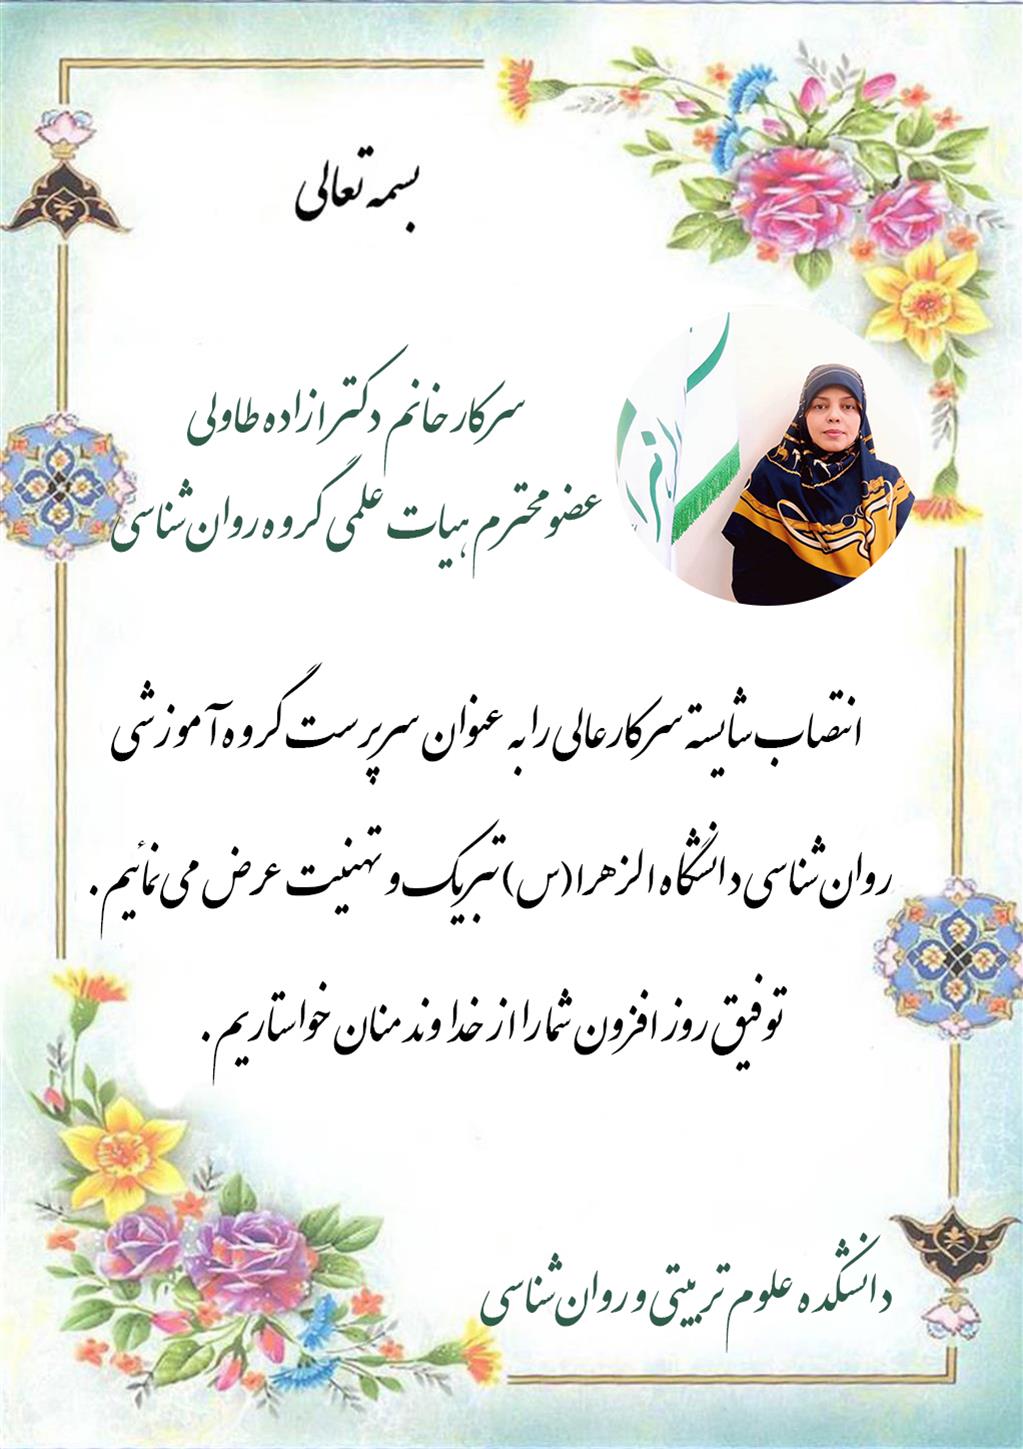 بسمه تعالی
سرکار خانم دکتر ازاده طاولی
عضو محترم هیات علمی گروه روان‌شناسی
انتصاب شایسته سرکار عالی را به عنوان سرپرست گروه آموزشی
روان‌شناسی دانشگاه الزهرا(س) تبریک و تهنیت عرض می‌نمائیم.
توفیق روز افزون شما را از خداوند منان خواستاریم.
دانشکده علوم تربیتی و روان‌شناسی